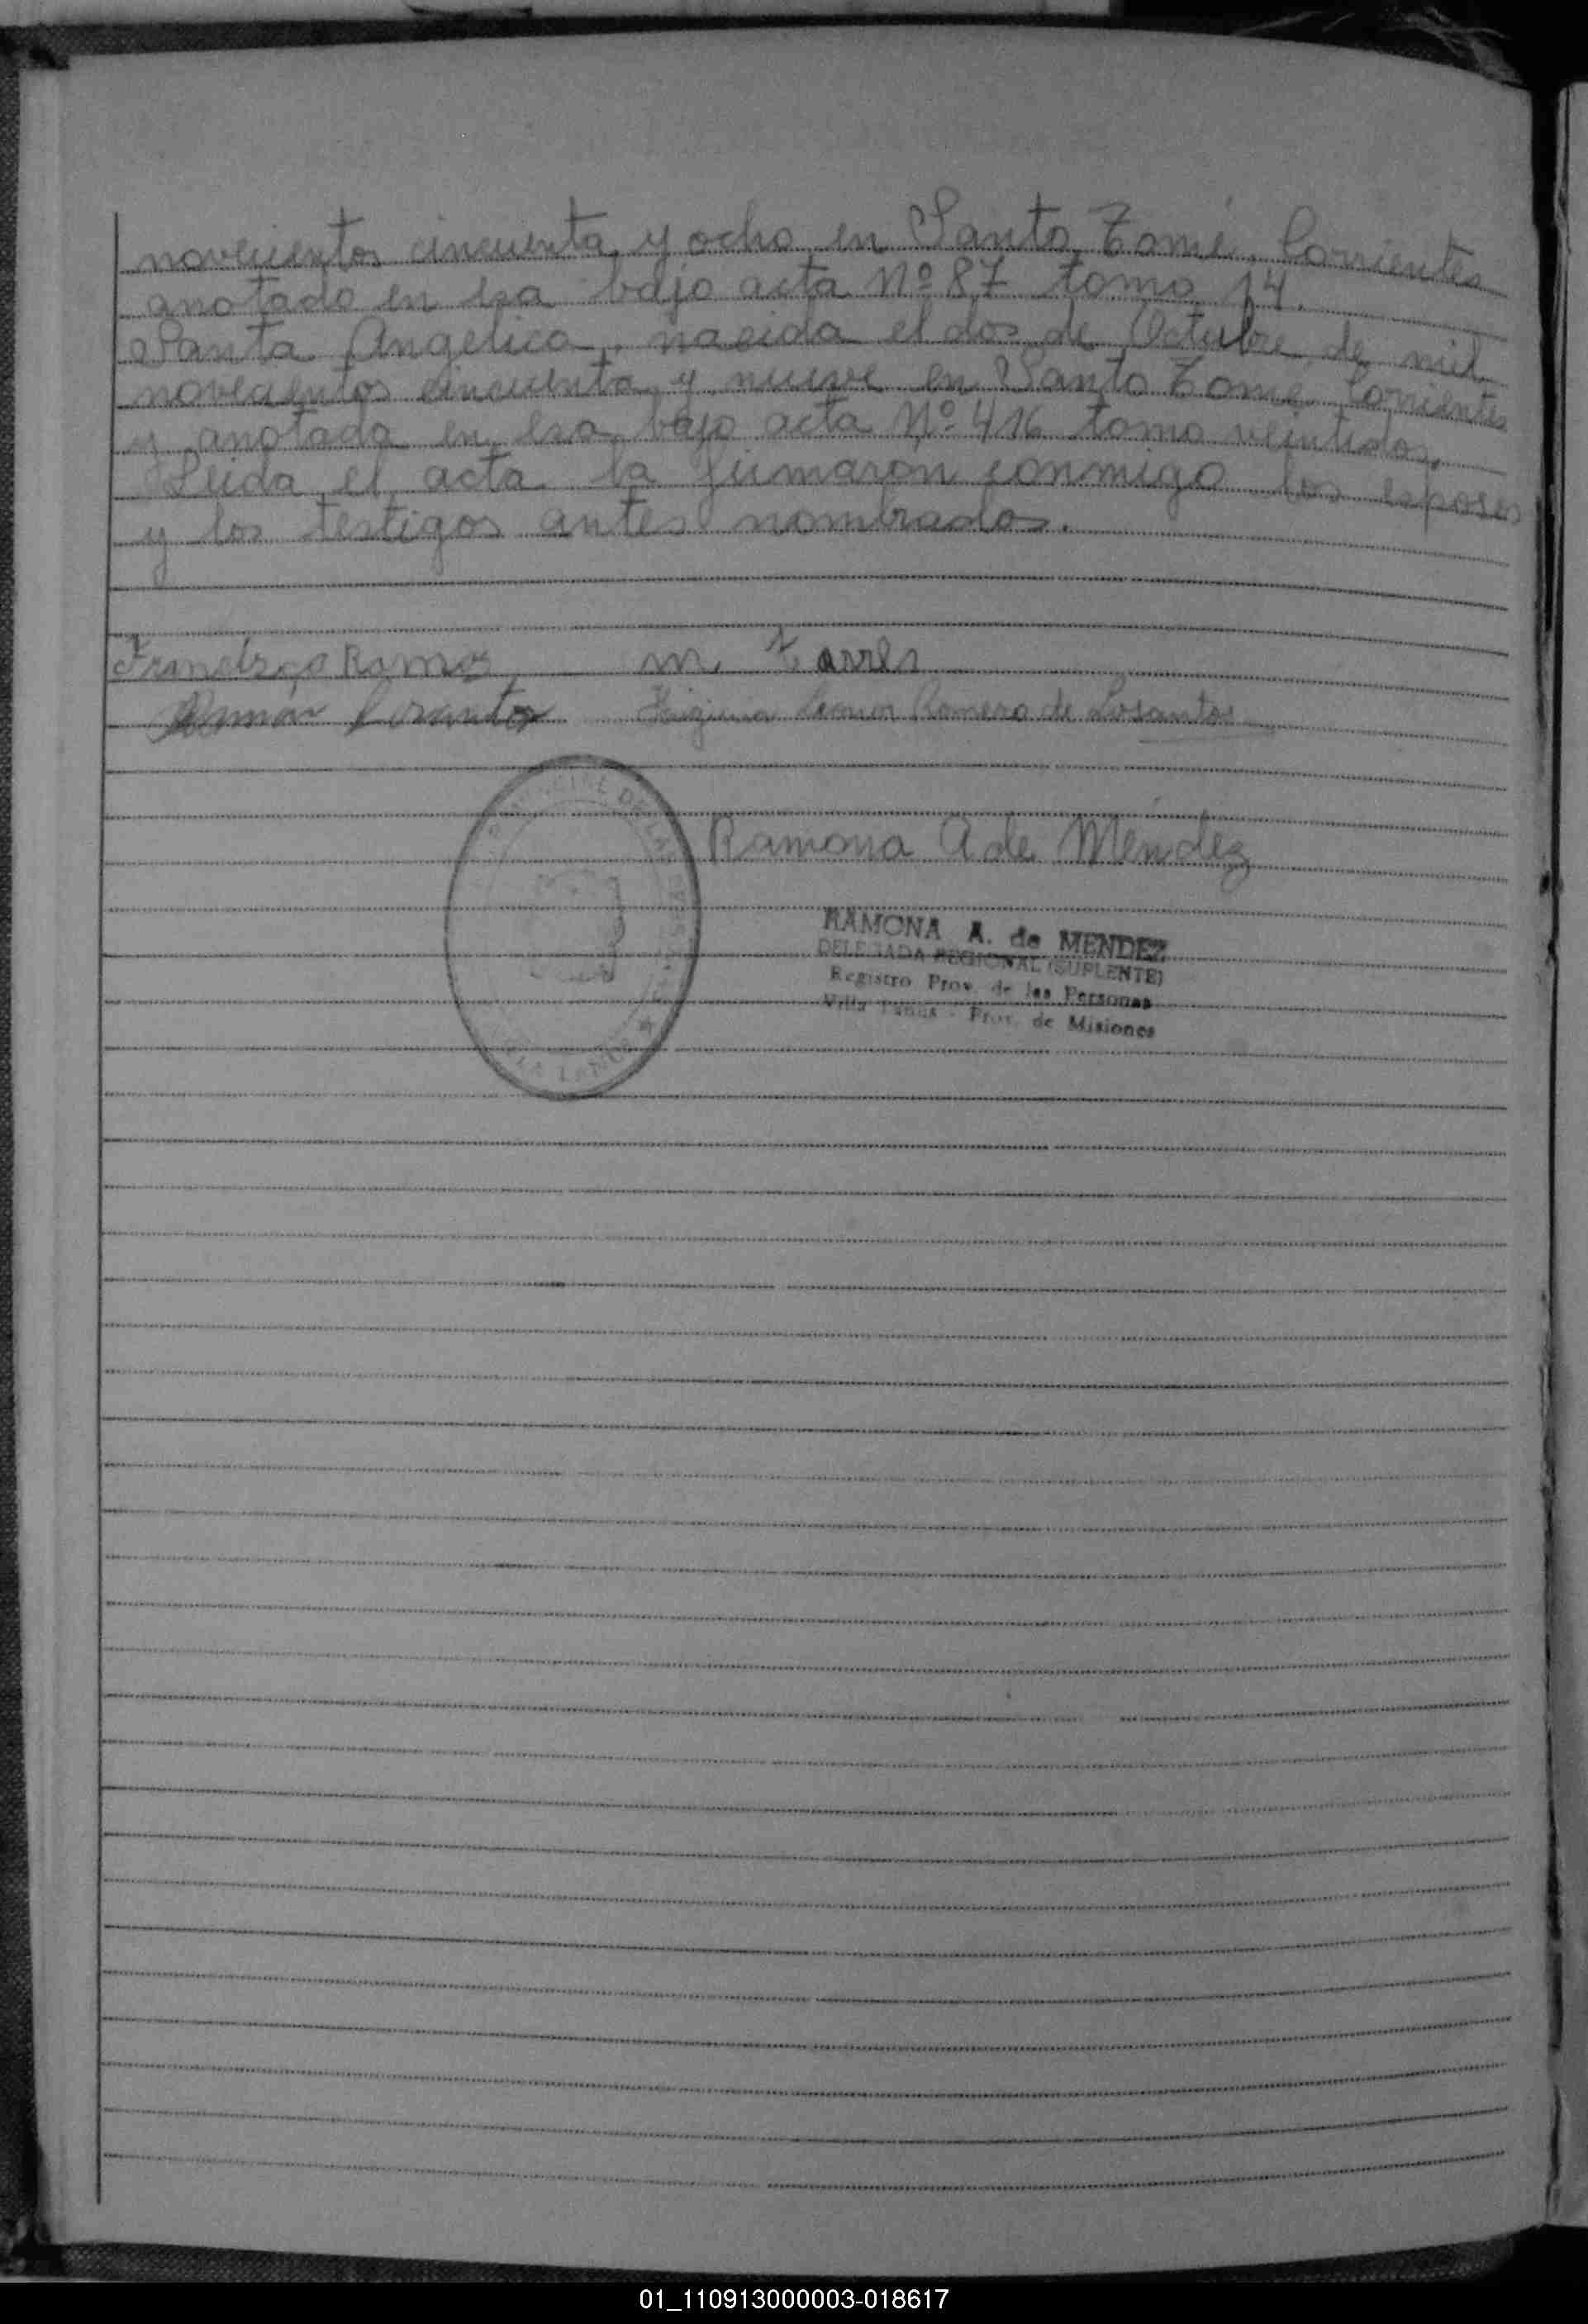 novecientos cincuenta y ocho en Santo Tomé, Corrientes
anotado en esa bajo acta Nº 87 tomo 14.
Santa Angelica, nacida el dos de Octubre de mil
novecientos cincuenta y nueve en Santo Tomé Corrientes
y anotada en esa bajo acta Nº 416 tomo veintidos.
Leida el acta la firmaron conmigo los esposos
y los testigos antes nombrados.
Francisco Ramos m Torres
Romero de Losantos
Ramona A de Méndez
RAMONA A. de MENDEZ
DELEGADA REGIONAL (SUPLENTE)
Registro Prov. de las Personas
Villa Lanus - Prov. de Misiones
01_110913000003-018617